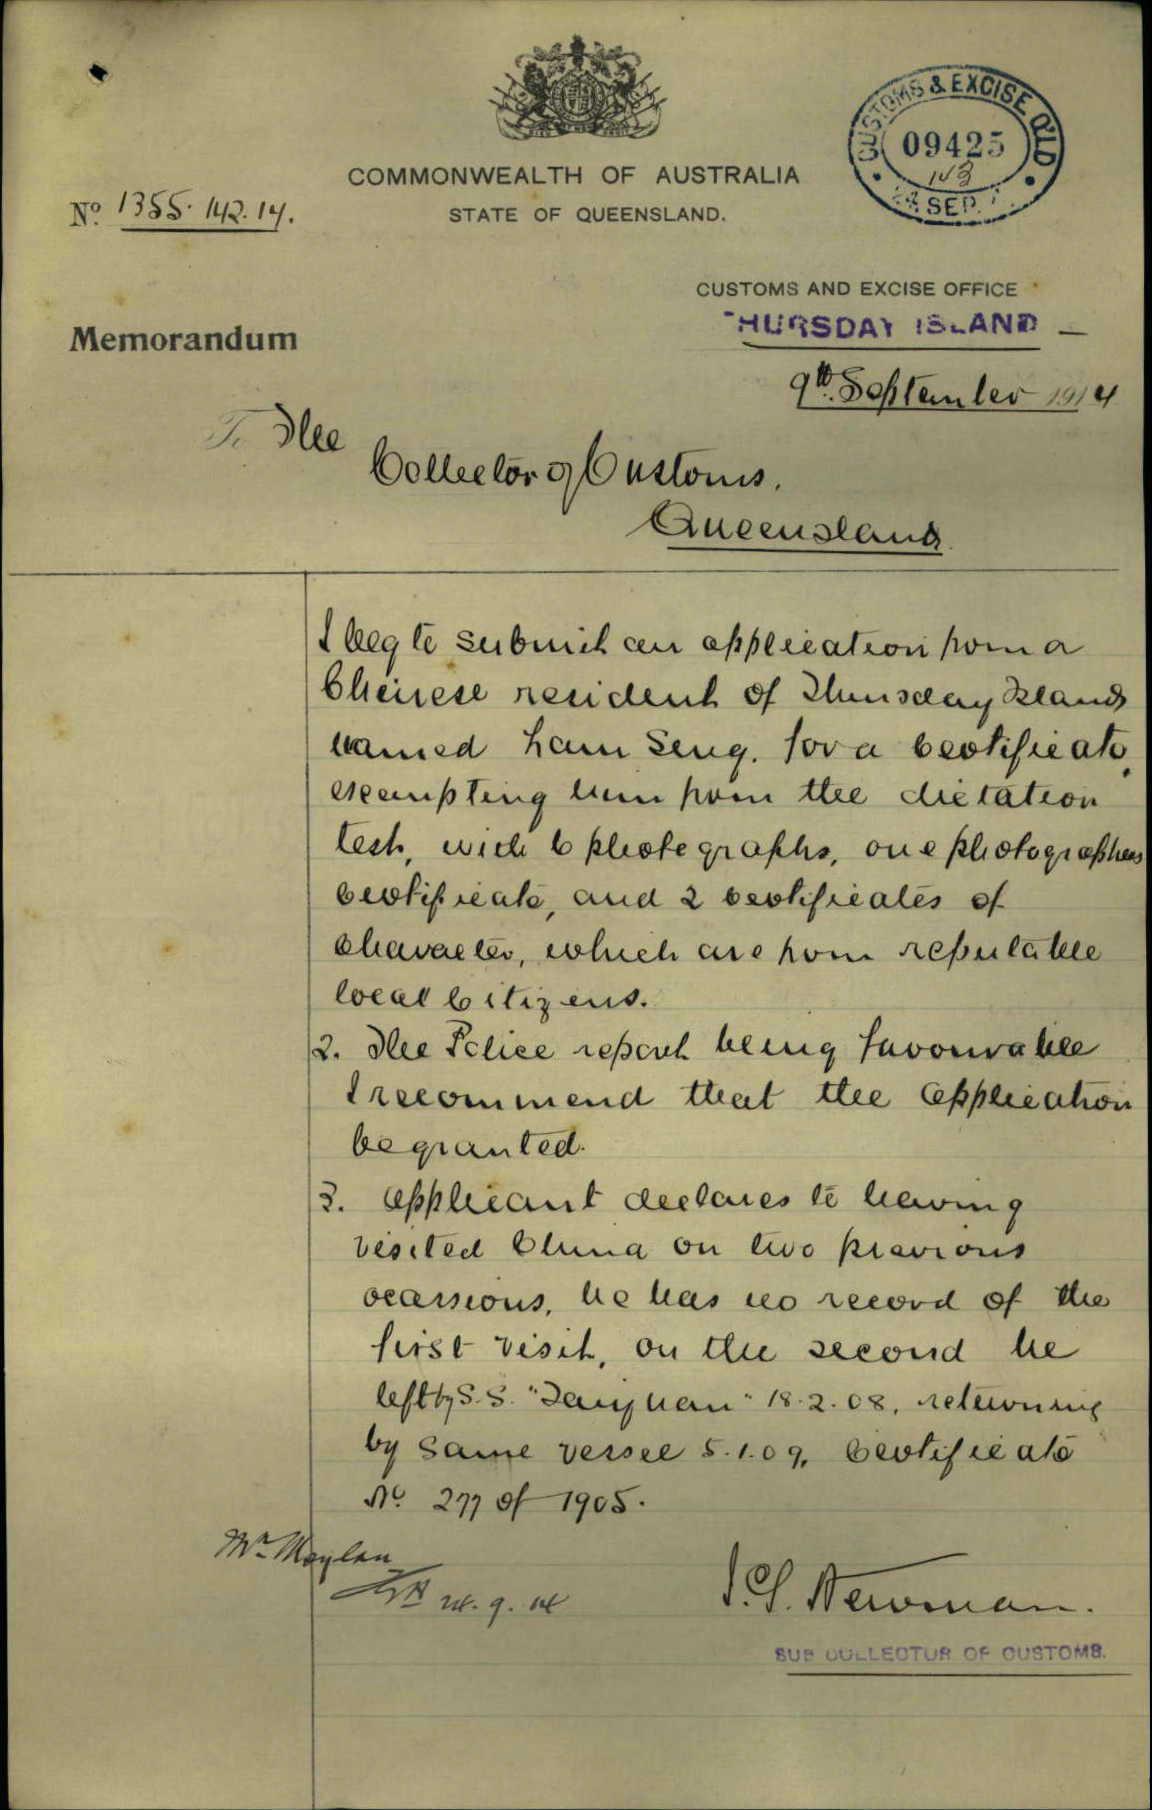 CUSTOMS & EXCISE Q'LD
09425
24 SEP.
COMMONWEALTH OF AUSTRALIA
STATE OF QUEENSLAND.
No 1355. 142.14.
CUSTOMS AND EXCISE OFFICE
THURSDAY ISLAND
Memorandum
9th. September 1914
To The
Collector of Customs.
Queensland
I beg to submit an application from a
Chinese resident of Thursday Island
named Lam Seng. for a Certificate
exempting him from the dictation
test, with 6 photographs, one photographers
certificate, and 2 certificates of
character, which are from reputable
local Citizens.
2. The Police report being favourable
I recommend that the application
be granted.
3. Applicant declares to having
visited China on two previous
ocassions, he has no record of the
first visit, on the second he
left by S.S. "Taiyuan" 18.2.08, returning
by same vessel 5.1.09, Certificate
No. 277 of 1905.
Mr. Moylan
24.9.14
Newman.
SUB COLLECTOR OF CUSTOMS.